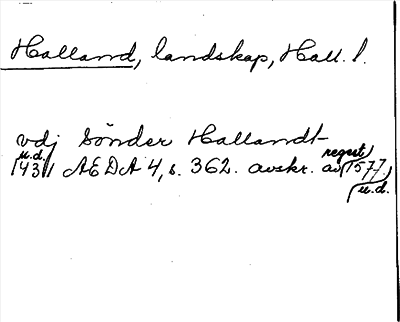 Halland, landskap, Hall. l.
vdj Sönder Hallandt-
u.d. regest
1431 AEDA 4, s. 362. avskr. av 1577
u.d.